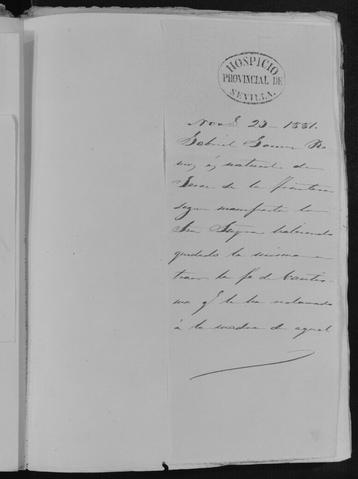 HOSPICIO
PROVINCIAL DE
SEVILLA.
Nov.e 23 - 1881.
Gabriel Gomez Ro
es natural de
Jerez de la frontera
segun manifiesta la
habiendo
quedado la misma en
traer la fe de bautis
mo q.e le ha reclamado
á la madre de aquel